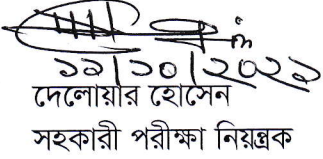 ১১/১০/২০২১
দেলোয়ার হোসেন
সহকারী পরীক্ষা নিয়ন্ত্রক